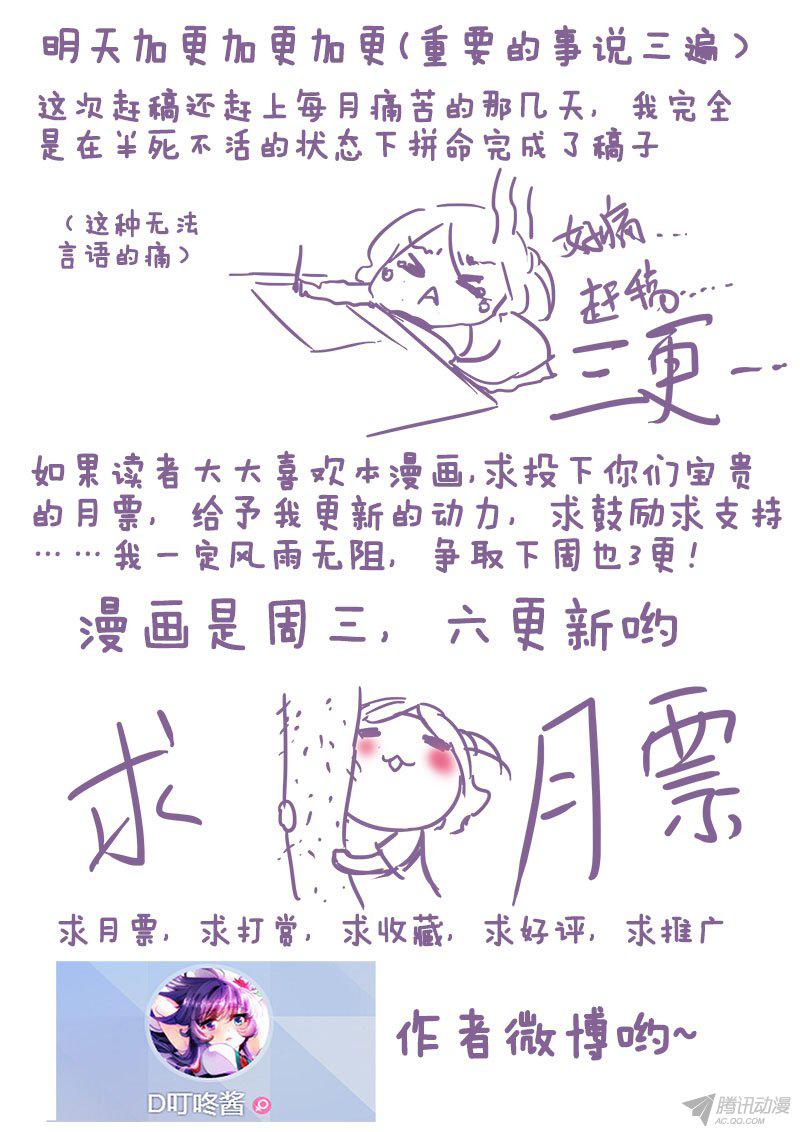 明天加更加更加更(重要的事说三遍)
这次赶稿还赶上每月痛苦的那几天, 我完全
是在半死不活的状态下拼命完成了稿子
(这种无法
言语的痛)
好痛...
赶稿......
三更...
如果读者大大喜欢本漫画,求投下你们宝贵
的月票, 给予我更新的动力, 求鼓励求支持
……我一定风雨无阻, 争取下周也3更!
漫画是周三, 六更新哟
求月票
求月票, 求打赏, 求收藏, 求好评, 求推广
作者微博哟~
D叮咚酱
腾讯动漫
AC.QQ.COM